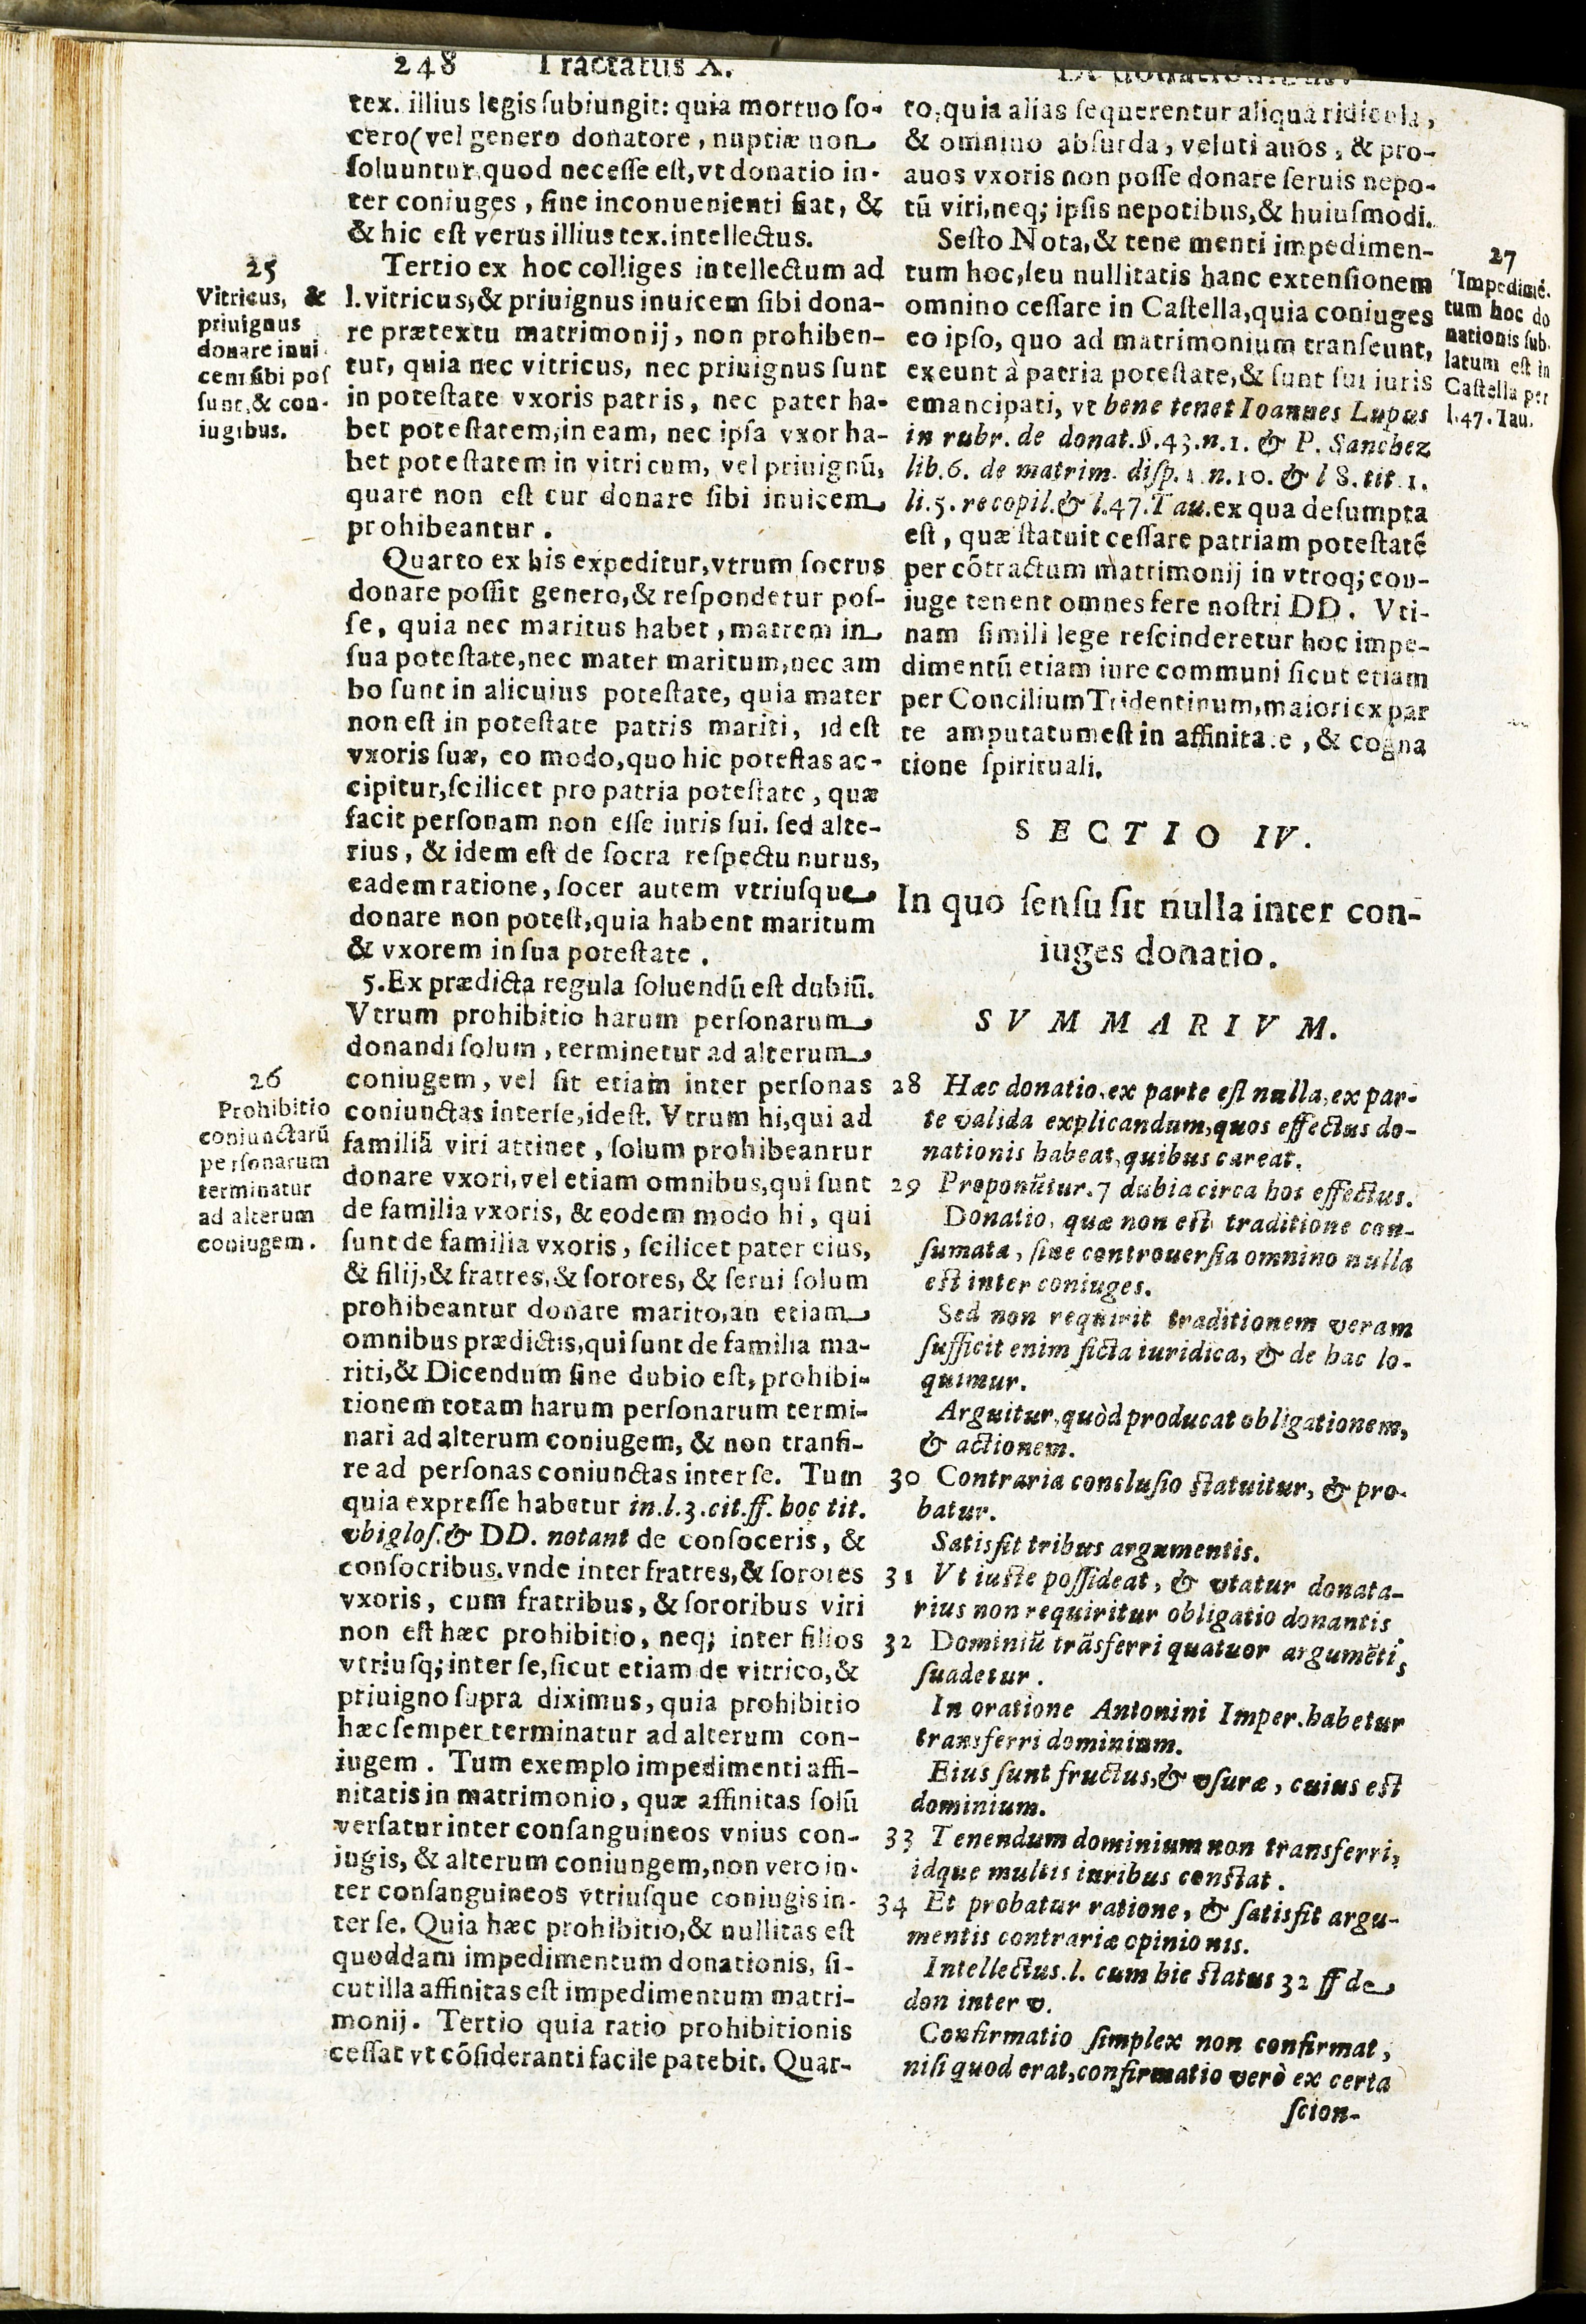 248 Tractatus X.
tex. illius legis ſubiungit: quia mortuo ſo-
cero (vel genero donatore, nuptiæ non
ſoluuntur, quod neceſſe eſt, vt donatio in-
ter coniuges, ſine inconuenienti fiat, &
& hic eſt verus illius tex. intellectus.
25
Vitricus, &
priuignus
donare inui
cem ſibi poſ
ſunt, & con-
iugibus.
Tertio ex hoc colliges intellectum ad
l. vitricus, & priuignus inuicem ſibi dona-
re prætextu matrimonij, non prohiben-
tur, quia nec vitricus, nec priuignus ſunt
in poteſtate vxoris patris, nec pater ha-
bet poteſtatem, in eam, nec ipſa vxor ha-
bet poteſtatem in vitricum, vel priuignū,
quare non eſt cur donare ſibi inuicem
prohibeantur.
Quarto ex his expeditur, vtrum ſocrus
donare poſſit genero, & reſpondetur poſ-
ſe, quia nec maritus habet, matrem in
ſua poteſtate, nec mater maritum, nec am
bo ſunt in alicuius poteſtate, quia mater
non eſt in poteſtate patris mariti, id eſt
vxoris ſuæ, eo modo, quo hic poteſtas ac-
cipitur, ſcilicet pro patria poteſtate, quæ
facit perſonam non eſſe iuris ſui. ſed alte-
rius, & idem eſt de ſocra reſpectu nurus,
eadem ratione, ſocer autem vtriuſque
donare non poteſt, quia habent maritum
& vxorem in ſua poteſtate.
5. Ex prædicta regula ſoluendū eſt dubiū.
Vtrum prohibitio harum perſonarum
donandi ſolum, terminetur ad alterum
26
Prohibitio
coniunctarū
perſonarum
terminatur
ad alterum
coniugem.
coniugem, vel ſit etiam inter perſonas
coniunctas inter ſe, ideſt. Vtrum hi, qui ad
familiā viri attinet, ſolum prohibeantur
donare vxori, vel etiam omnibus, qui ſunt
de familia vxoris, & eodem modo hi, qui
ſunt de familia vxoris, ſcilicet pater eius,
& filij, & fratres, & ſorores, & ſerui ſolum
prohibeantur donare marito, an etiam
omnibus prædictis, qui ſunt de familia ma-
riti, & Dicendum ſine dubio eſt, prohibi-
tionem totam harum perſonarum termi-
nari ad alterum coniugem, & non tranſi-
re ad perſonas coniunctas inter ſe. Tum
quia expreſſe habetur in. l. 3. cit. ff. hoc tit.
vbi gloſ. & DD. notant de conſoceris, &
conſocribus. vnde inter fratres, & ſorores
vxoris, cum fratribus, & ſororibus viri
non eſt hæc prohibitio, neq; inter filios
vtriuſq; inter ſe, ſicut etiam de vitrico, &
priuigno ſupra diximus, quia prohibitio
hæc ſemper terminatur ad alterum con-
iugem. Tum exemplo impedimenti affi-
nitatis in matrimonio, quæ affinitas ſolū
verſatur inter conſanguineos vnius con-
iugis, & alterum coniungem, non vero in-
ter conſanguineos vtriuſque coniugis in-
ter ſe. Quia hæc prohibitio, & nullitas eſt
quoddam impedimentum donationis, ſi-
cut illa affinitas eſt impedimentum matri-
monij. Tertio quia ratio prohibitionis
ceſſat vt cōſideranti facile patebit. Quar-
to, quia alias ſequerentur aliqua ridicula,
& omnino abſurda, veluti auos, & pro-
auos vxoris non poſſe donare ſeruis nepo-
tū viri, neq; ipſis nepotibus, & huiuſmodi.
27
Impedimē-
tum hoc do
nationis ſub-
latum eſt in
Caſtella per
l. 47. Tau.
Seſto Nota, & tene menti impedimen-
tum hoc, ſeu nullitatis hanc extenſionem
omnino ceſſare in Caſtella, quia coniuges
eo ipſo, quo ad matrimonium tranſeunt,
exeunt à patria poteſtate, & ſunt ſui iuris
emancipati, vt bene tenet Ioannes Lupus
in rubr. de donat. §. 43. n. 1. & P. Sanchez
lib. 6. de matrim. diſp. 1. n. 10. & l 8. tit. 1.
li. 5. recopil. & l. 47. Tau. ex qua deſumpta
eſt, quæ ſtatuit ceſſare patriam poteſtatē
per cōtractum matrimonij in vtroq; con-
iuge tenent omnes fere noſtri DD. Vti-
nam ſimili lege reſcinderetur hoc impe-
dimentū etiam iure communi ſicut etiam
per Concilium Tridentinum, maiori ex par
te amputatum eſt in affinitate, & cogna
tione ſpirituali.
SECTIO IV.
In quo ſenſu ſit nulla inter con-
iuges donatio.
SVMMARIVM.
28 Hæc donatio, ex parte eſt nulla, ex par-
te valida explicandum, quos effectus do-
nationis habeat, quibus careat.
29 Proponūtur. 7 dubia circa hos effectus.
Donatio, quæ non eſt traditione con-
ſumata, ſine controuerſia omnino nulla
eſt inter coniuges.
Sed non requirit traditionem veram
ſufficit enim ficta iuridica, & de hac lo-
quimur.
Arguitur, quòd producat obligationem,
& actionem.
30 Contraria concluſio ſtatuitur, & pro-
batur.
Satisfit tribus argumentis.
31 Vt iuſte poſſideat, & vtatur donata-
rius non requiritur obligatio donantis
32 Dominiū trāſferri quatuor argumētis
ſuadetur.
In oratione Antonini Imper. habetur
transferri dominium.
Eius ſunt fructus, & vſuræ, cuius eſt
dominium.
33 Tenendum dominium non transferri,
idque multis iuribus conſtat.
34 Et probatur ratione, & ſatisfit argu-
mentis contrariæ opinionis.
Intellectus. l. cum hic ſtatus 32 ff de
don inter v.
Confirmatio ſimplex non confirmat,
niſi quod erat, confirmatio verò ex certa
ſcion-